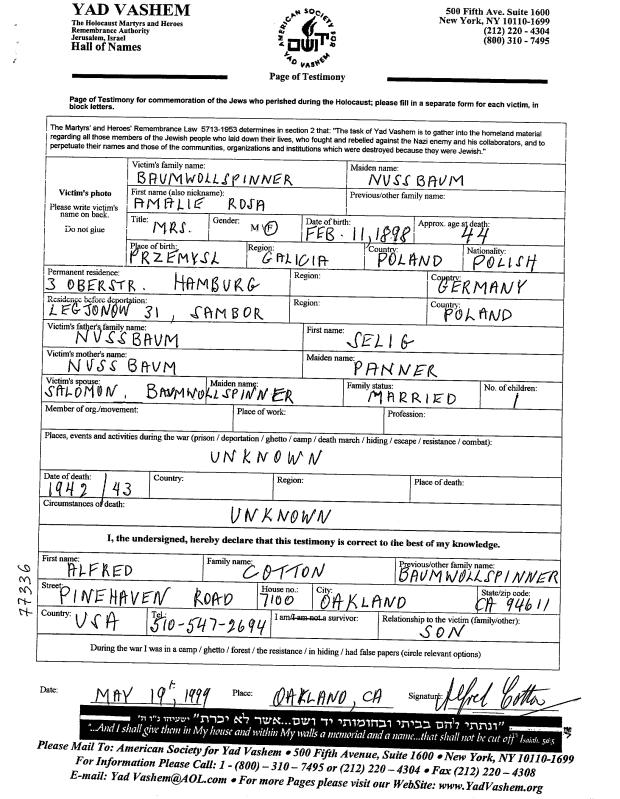 YAD VASHEM
The Holocaust Martyrs and Heroes
Remembrance Authority
Jerusalem, Israel
Hall of Names
AMERICAN SOCIETY FOR YAD VASHEM
500 Fifth Ave. Suite 1600
New York, NY 10110-1699
(212) 220 - 4304
(800) 310 - 7495
Page of Testimony
Page of Testimony for commemoration of the Jews who perished during the Holocaust; please fill in a separate form for each victim, in
block letters.
The Martyrs' and Heroes' Remembrance Law 5713-1953 determines in section 2 that: "The task of Yad Vashem is to gather into the homeland material
regarding all those members of the Jewish people who laid down their lives, who fought and rebelled against the Nazi enemy and his collaborators, and to
perpetuate their names and those of the communities, organizations and institutions which were destroyed because they were Jewish."
Victim's photo
Please write victim's
name on back.
Do not glue
Victim's family name: Maiden name:
BAUMWOLLSPINNER NUSSBAUM
First name (also nickname): Previous/other family name:
AMALIE ROSA
Title: Gender: Date of birth: Approx. age at death:
MRS. M F FEB. 11, 1898 44
Place of birth: Region: Country: Nationality:
PRZEMYSL GALICIA POLAND POLISH
Permanent residence: Region: Country:
3 OBERSTR. HAMBURG GERMANY
Residence before deportation: Region: Country:
LEGJONOW 31, SAMBOR POLAND
Victim's father's family name: First name:
NUSSBAUM SELIG
Victim's mother's name: Maiden name:
NUSSBAUM PANNER
Victim's spouse: Maiden name: Family status: No. of children:
SALOMON. BAUMWOLLSPINNER MARRIED 1
Member of org./movement: Place of work: Profession:
Places, events and activities during the war (prison / deportation / ghetto / camp / death march / hiding / escape / resistance / combat):
UNKNOWN
Date of death: Country: Region: Place of death:
1942/43
Circumstances of death:
UNKNOWN
I, the undersigned, hereby declare that this testimony is correct to the best of my knowledge.
First name: Family name: Previous/other family name:
ALFRED COTTON BAUMWOLLSPINNER
Street: House no.: City: State/zip code:
PINEHAVEN ROAD 7100 OAKLAND CA 94611
Country: Tel.: I am/I am not a survivor: Relationship to the victim (family/other):
USA 510-547-2694 SON
During the war I was in a camp / ghetto / forest / the resistance / in hiding / had false papers (circle relevant options)
77336
Date: MAY 19t, 1999 Place: OAKLAND, CA Signature: Alfred Cotton
"ונתתי להם בביתי ובחומותי יד ושם...אשר לא יכרת" ישעיהו נ"ו ה'
"...And I shall give them in My house and within My walls a memorial and a name...that shall not be cut off" Isaiah 56:5
Please Mail To: American Society for Yad Vashem • 500 Fifth Avenue, Suite 1600 • New York, NY 10110-1699
For Information Please Call: 1 - (800) – 310 – 7495 or (212) 220 – 4304 • Fax (212) 220 – 4308
E-mail: Yad Vashem@AOL.com • For more Pages please visit our WebSite: www.YadVashem.org